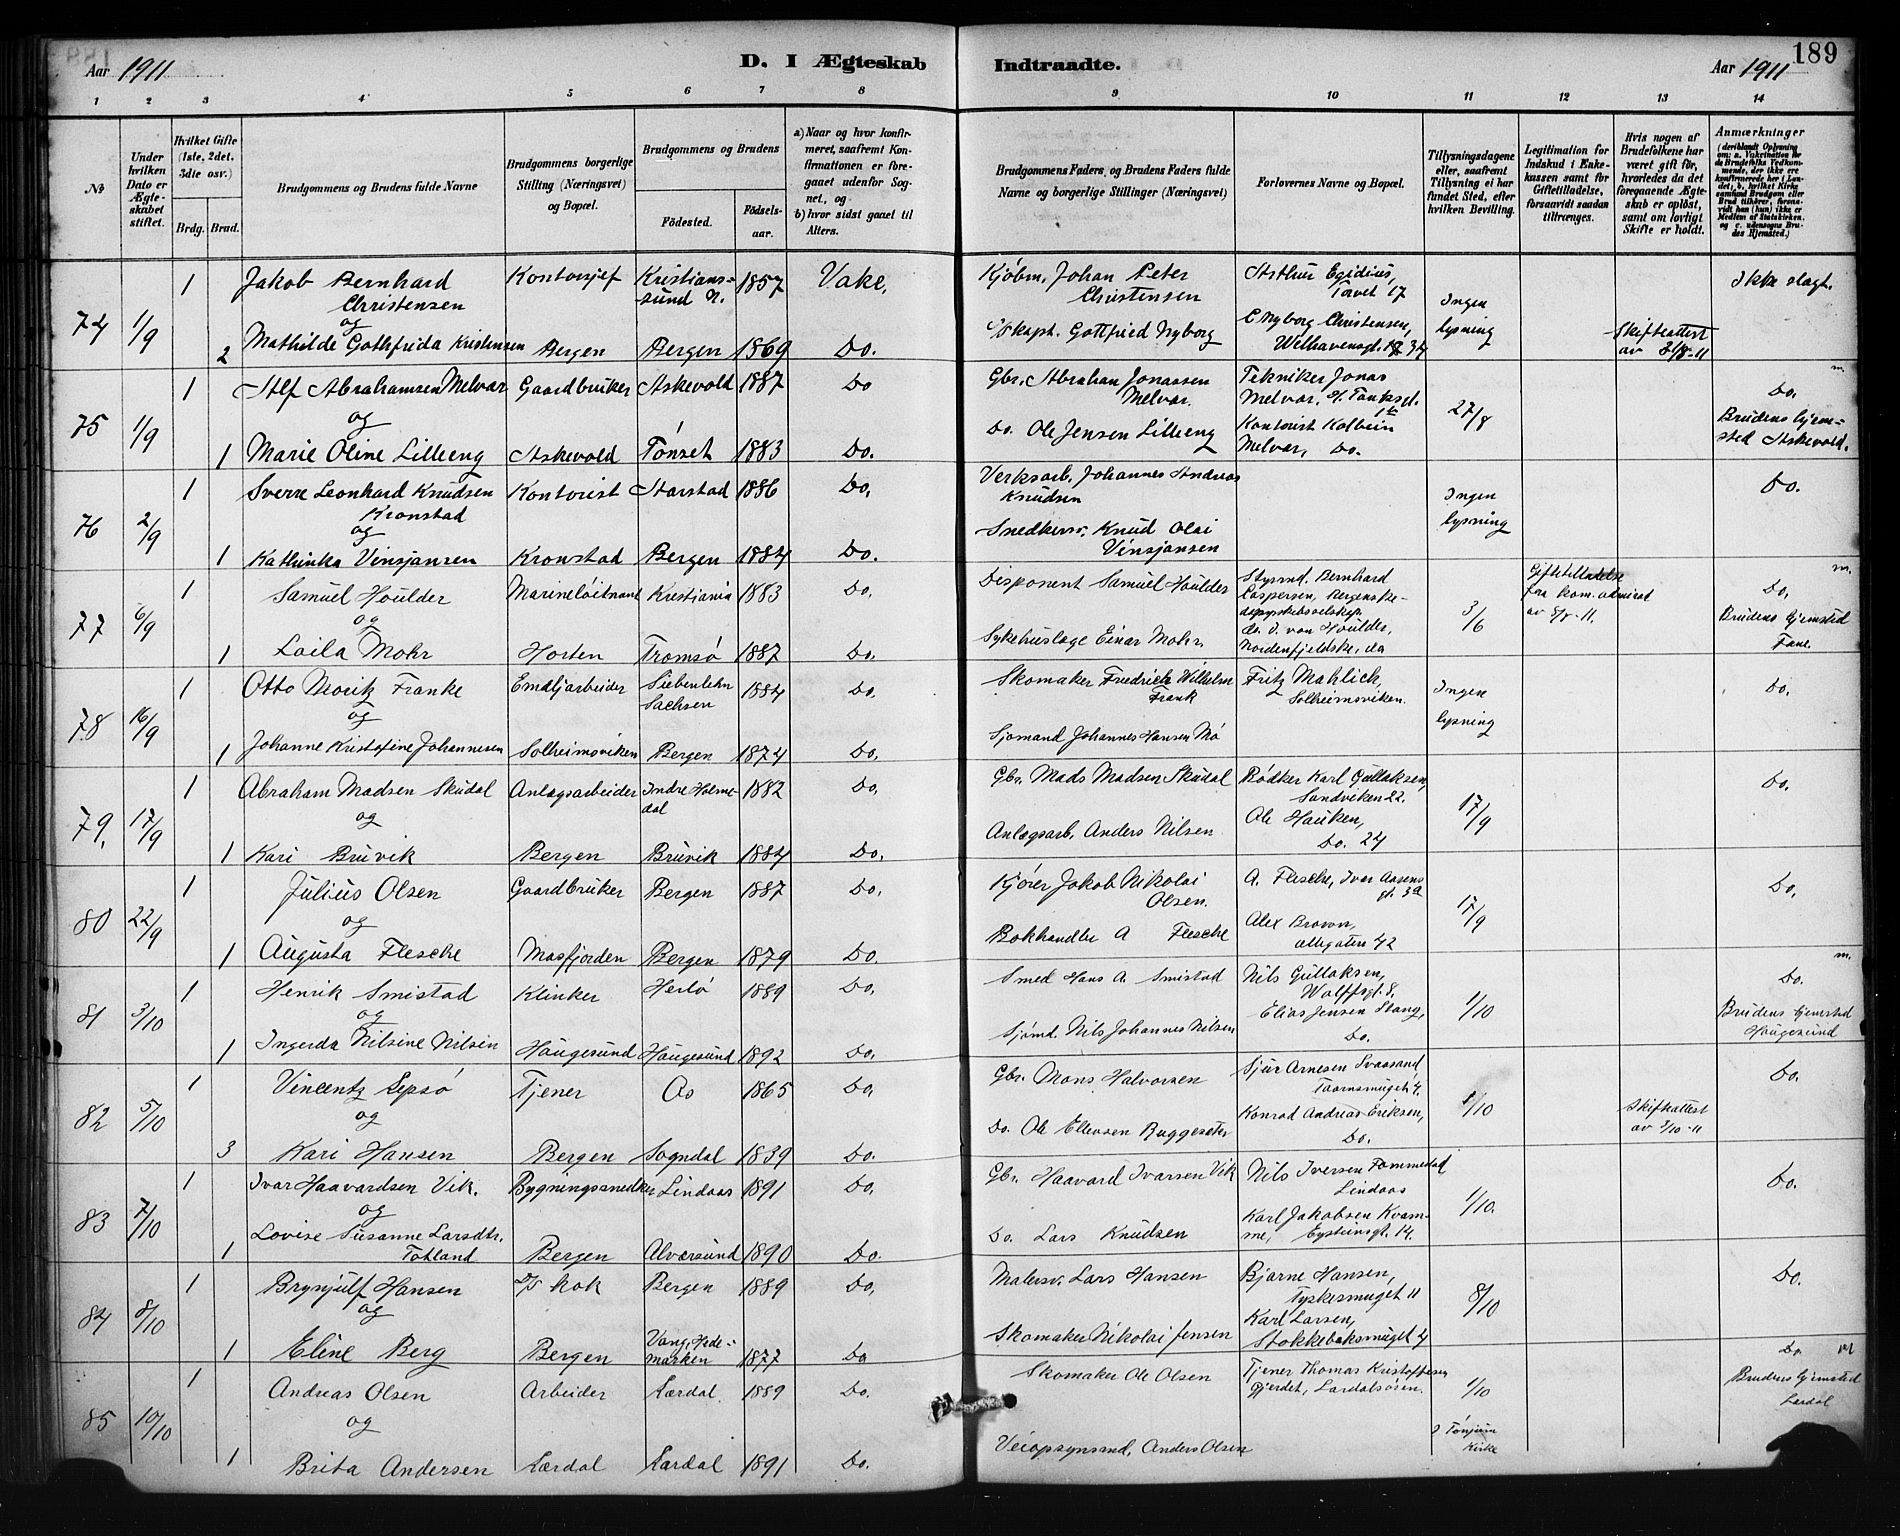 189
Aar 1911
D. I Ægteskab Indtraadte.
Aar 1911
1 2 3 4 5 6 7 8 9 10 11 12 13 14
No
Under hvilken Dato er Ægteskabet stiftet.
Hvilket Gifte (1ste, 2det, 3die osv.)
Brdg. Brud.
Brudgommens og Brudens fulde Navne
Brudgommens borgerlige Stilling (Næringsvei) og Bopæl.
Brudgommens og Brudens
Fødested.
Fødselsaar.
a) Naar og hvor konfirmeret, saafremt Konfirmationen er foregaaet udenfor Sognet, og
b) hvor sidst gaaet til Alters.
Brudgommens Faders, og Brudens Faders fulde Navne og borgerlige Stillinger (Næringsvei)
Forlovernes Navne og Bopæl.
Tillysningsdagene eller, saafremt Tillysning ei har fundet Sted, efter hvilken Bevilling.
Legitimation for Indskud i Enkekassen samt for Giftetilladelse, forsaavidt saadan tiltrænges.
Hvis nogen af Brudefolkene har været gift før, hvorledes da det foregaaende Ægteskab er opløst, samt om lovligt Skifte er holdt.
Anmærkninger
74 1/9 1 Jakob Bernhard Christensen Kontorsjef Kristianssund N. 1857 Vake. Kjøbm. Johan Peter Christensen Arthur Egidius, Torvet 17 Ingen lysning Ikke slegt.
og
2 Mathilde Gothfrida Kristensen Bergen Bergen 1869 Do. Skapt. Gottfried Nyborg C Nyborg Christensen, Welhavensgt. 34 Skifteattest av
75 1/9 1 Alf Abrahamsen Melvar Gaardbruker Askevold 1887 Do Gbr. Abraham Jonassen Melvar. Tekniker Jonas Melvar, H. Tanksgt. 27/8 Do.
og
1 Marie Oline Lilleeng Askevold Tønset 1883 Do. Do. Ole Jensen Lilleeng Kontorist Kolbein Melvar, Do. Brudens hjemsted Askevold.
76 2/9 1 Sverre Leonhard Knudsen Kronstad Kontorist Harstad 1886 Do. Verksarb. Johannes Andreas Knudsen Ingen lysning Do.
og
1 Kathinka Vinsjansen Kronstad Bergen 1884 Do. Snedkersv. Knud Olai Vinsjansen
77 6/9 1 Samuel Houlder Marineløitnant Kristiania 1883 Do. Disponent Samuel Houlder Styrmd. Bernhard Caspersen, Bergenske dampskibsselskap 3/6 Giftetilladelse fra kom. admiral av Do.
og
1 Laila Mohr Horten Tromsø 1887 Do. Sykehuslæge Einar Mohr. do. J. von Houlder, Nordenfjeldske, da Brudens hjemsted Fane.
78 16/9 1 Otto Moritz Franke Emaljarbeider Siebenlehn Sachsen 1884 Do. Skomaker Friedrich Wilhelm Frank Fritz Mahlich, Solheimsviken. Ingen lysning Do.
og
1 Johanne Kristofine Johannesen Solheimsviken Bergen 1874 Do. Sjømand Johannes Hansen Mo
79. 17/9 1 Abraham Madsen Skudal Anlægsarbeider Indre Holmedal 1882 Do. Gbr. Mads Madsen Skudal Bødker Karl Gullaksen, Sandviken 22. 17/9 Do.
og
1 Kari Bruvik Bergen Bruvik 1884 Do. Anlægsarb. Anders Nilsen Ole Hauken, Do. 24
80 22/9 1 Julius Olsen Gaardbruker Bergen 1887 Do. Kjører Jakob Nikolai Olsen. A. Flesche, Ivar Aasens gt. 3a 17/9 Do.
og
1 Augusta Flesche Masfjorden Bergen 1879 Do. Bokhandler A Flesche Alex Brown, Allegaten 42
81 3/10 1 Henrik Smistad Klinker Herlø 1889 Do. Smed Hans A. Smistad Nils Gullaksen, Wolffsgt. 8. 1/10 Do.
og
1 Ingerda Nilsine Nilsen Haugesund Haugesund 1892 Do. Sjømd. Nils Johannes Nilsen Elias Jensen Stang, Do. Brudens hjemsted Haugesund
82 5/10 1 Vincentz Lepsø Tjener Os 1865 Do. Gbr. Mons Halvorsen Sjur Arnesen Svaasand Taarnsmuget 4. 1/10 Do.
og
3 Kari Hansen Bergen Sogndal 1839 Do. Do. Ole Ellevsen Ruggesæter Konrad Andreas Eriksen, Do. Skifteattest av 3/10-11
83 7/10 1 Ivar Haavardsen Vik. Bygningssnedker Lindaas 1891 Do. Gbr. Haavard Ivarsen Vik Nils Iversen Fammestad Lindaas 1/10. Do.
og
1 Lovise Susanne Larsdtr. Totland Bergen Alversund 1890 Do. Do. Lars Knudsen Karl Jakobsen Kvamme, Eysteinsgt. 14.
84 8/10 1 Brynjulf Hansen D/S kok Bergen 1889 Do. Malersv. Lars Hansen Bjarne Hansen, Tyskesmuget 11 8/10 Do.
og
1 Eline Berg Bergen Vang, Hedemarken 1877 Do Skomaker Nikolai Jensen Karl Larsen, Stokkebaksmuget 4
85 10/10 1 Andreas Olsen Arbeider Lærdal 1889 Do. Skomaker Ole Olsen Tjener Thomas Kristoffersen Gjerdet, Lærdalsøren. 1/10 Do.
og
1 Brita Andersen Lærdal Lærdal 1891 Do. Veiopsynsmd. Anders Olsen I Tønjum Kirke Brudens hjemsted Lærdal